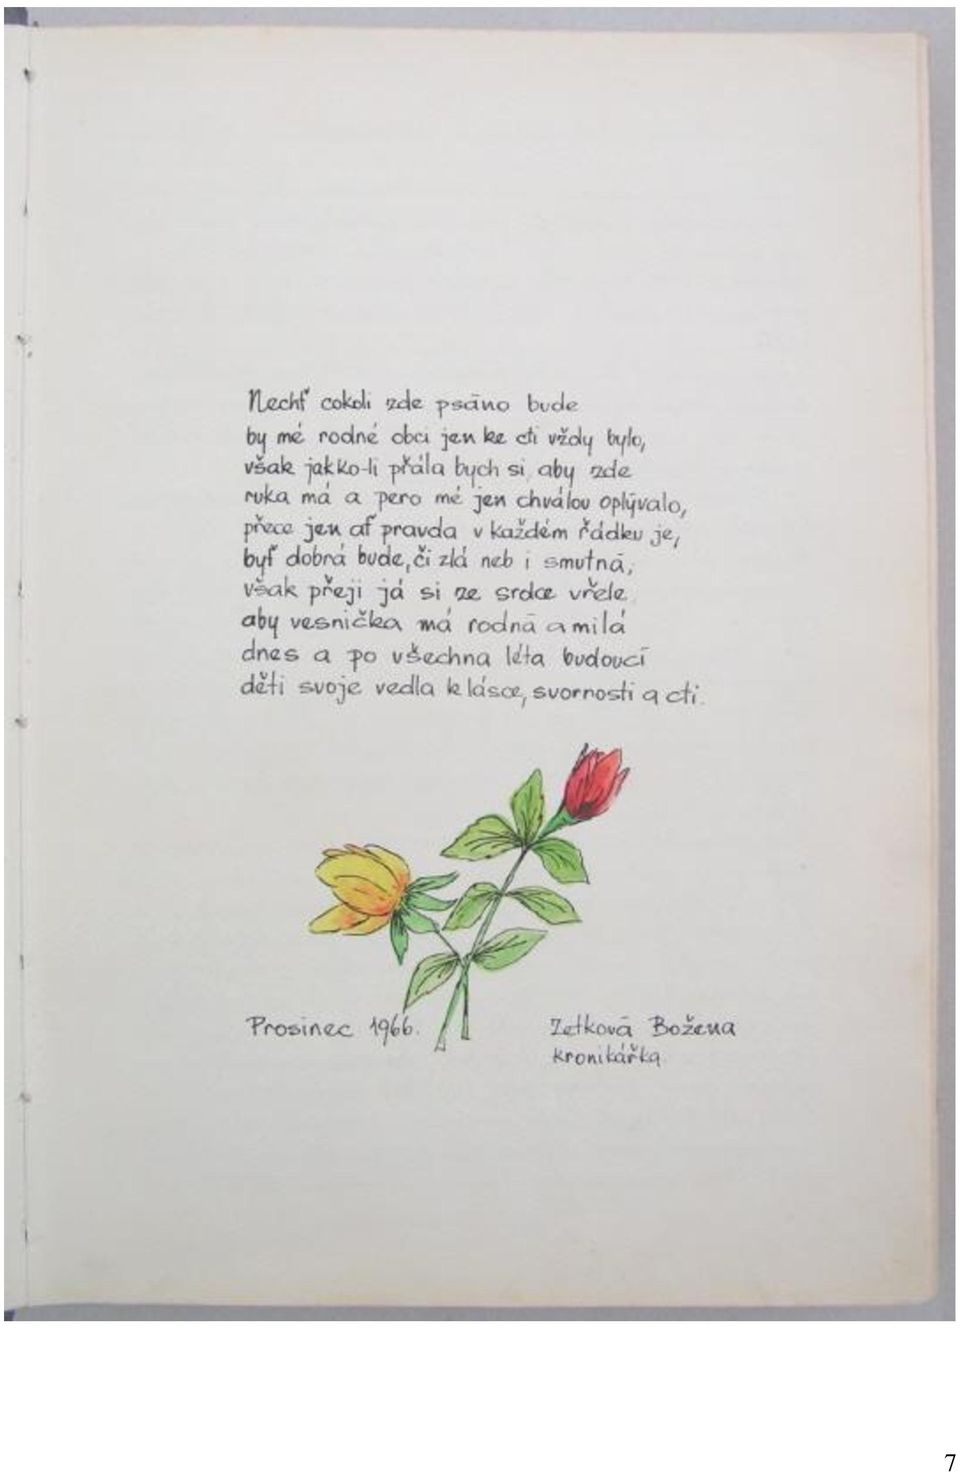 Nechť cokoli zde psáno bude
by mé rodné obci jen ke cti vždy bylo,
však jakko-li přála bych si, aby zde
ruka má a pero mé jen chválou oplývalo,
přece jen ať pravda v každém řádku je,
byť dobrá bude, či zlá neb i smutná,
však přeji já si ze srdce vřele
aby vesnička má rodná a milá
dnes a po všechna léta budoucí
děti svoje vedla k lásce, svornosti a cti.
Prosinec 1966. Zetková Božena
kronikářka
7